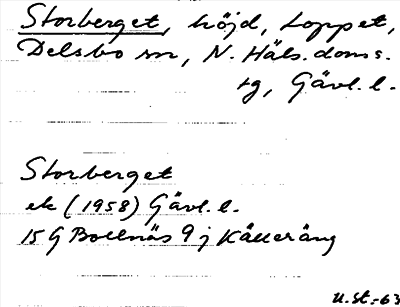 Storberget, höjd, Loppet,
Delsbo sn, N. Häls. doms.
tg, Gävl. l.
Storberget
ek (1958) Gävl. l.
15 G Bollnäs 9 j Källeräng
U.St.-63